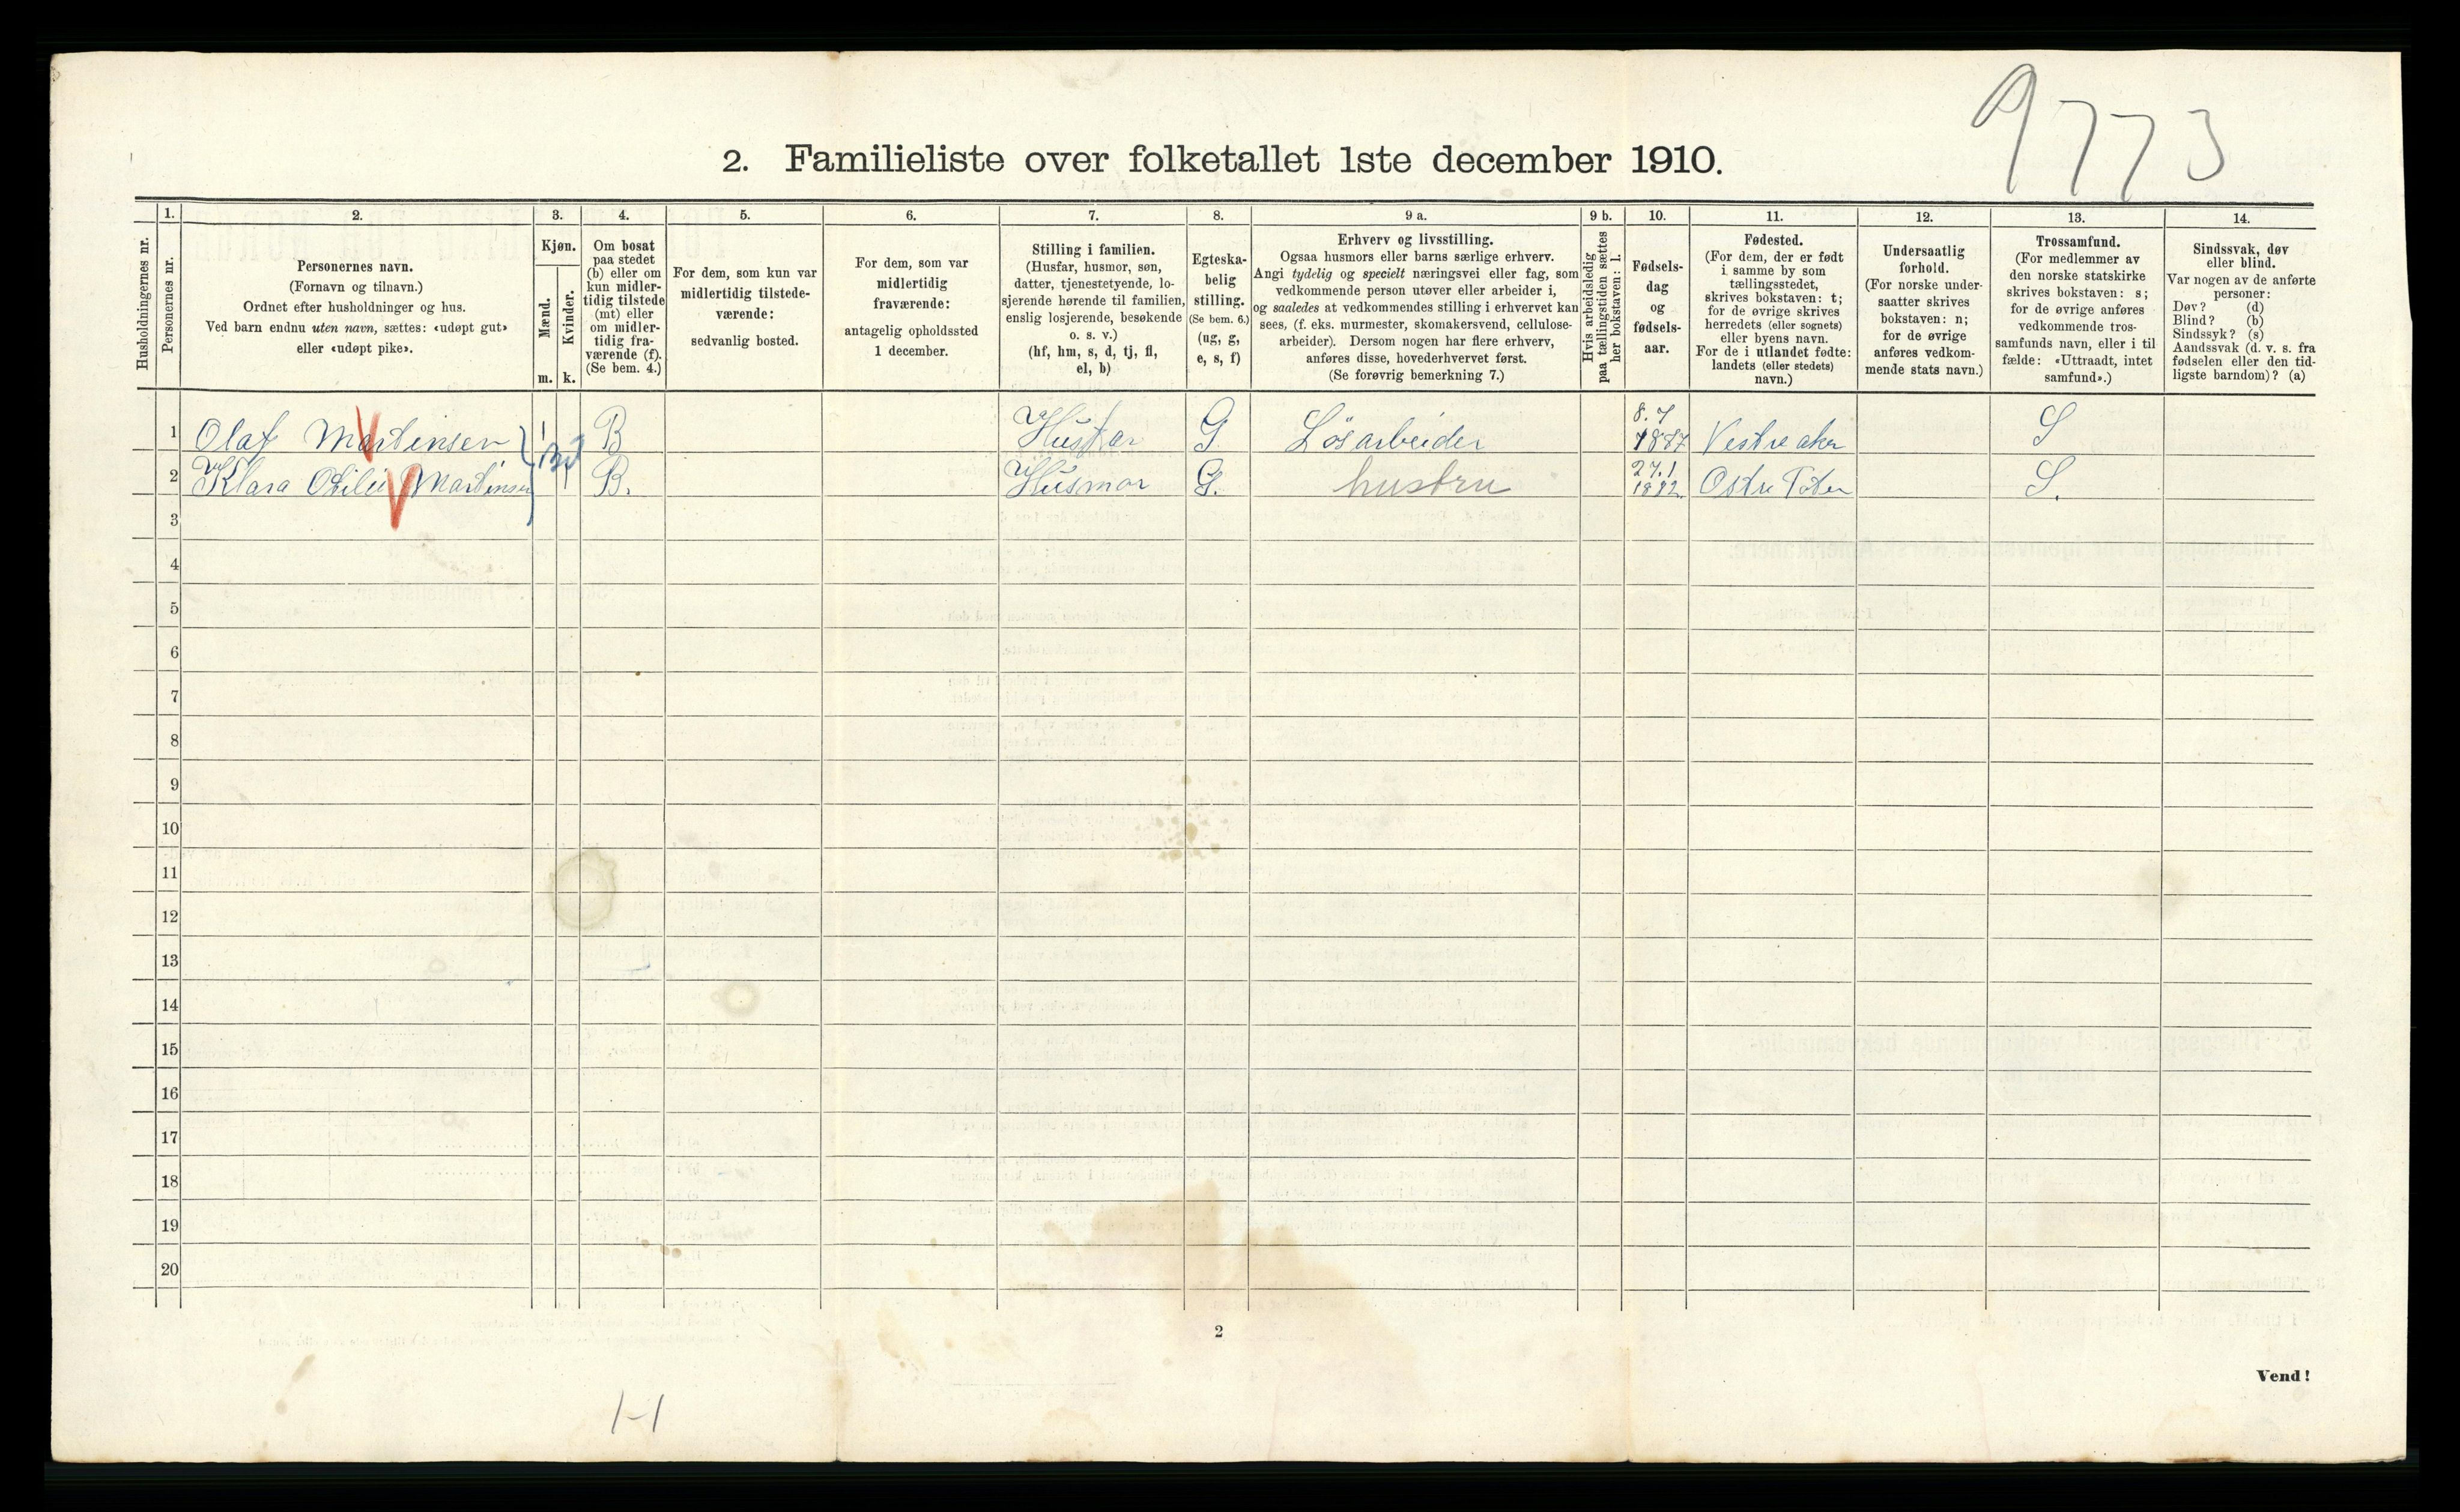 9773
2. Familieliste over folketallet 1ste december 1910.
1. 2. 3. 4. 5. 6. 7. 8. 9 a. 9 b. 10. 11. 12. 13. 14.
Husholdningernes nr.
Personernes nr.
Personernes navn.
(Fornavn og tilnavn.)
Ordnet efter husholdninger og hus.
Ved barn endnu uten navn, sættes: «udøpt gut»
eller «udøpt pike».
Kjøn.
Mænd.
Kvinder.
m. k.
Om bosat
paa stedet
(b) eller om
kun midler-
tidig tilstede
(mt) eller
om midler-
tidig fra-
værende (f).
(Se bem. 4.)
For dem, som kun var
midlertidig tilstede-
værende:
sedvanlig bosted.
For dem, som var
midlertidig
fraværende:
antagelig opholdssted
1 december.
Stilling i familien.
(Husfar, husmor, søn,
datter, tjenestetyende, lo-
sjerende hørende til familien,
enslig losjerende, besøkende
o. s. v.)
(hf, hm, s, d, tj, fl,
el, b)
Egteska-
belig
stilling.
(Se bem. 6.)
(ug, g,
e, s, f)
Erhverv og livsstilling.
Ogsaa husmors eller barns særlige erhverv.
Angi tydelig og specielt næringsvei eller fag, som
vedkommende person utøver eller arbeider i,
og saaledes at vedkommendes stilling i erhvervet kan
sees, (f. eks. murmester, skomakersvend, cellulose-
arbeider). Dersom nogen har flere erhverv,
anføres disse, hovederhvervet først.
(Se forøvrig bemerkning 7.)
Hvis arbeidsledig
paa tællingstiden sættes
her bokstaven: l.
Fødsels-
dag
og
fødsels-
aar.
Fødested.
(For dem, der er født
i samme by som
tællingsstedet,
skrives bokstaven: t;
for de øvrige skrives
herredets (eller sognets)
eller byens navn.
For de i utlandet fødte:
landets (eller stedets)
navn.)
Undersaatlig
forhold.
(For norske under-
saatter skrives
bokstaven: n;
for de øvrige
anføres vedkom-
mende stats navn.)
Trossamfund.
(For medlemmer av
den norske statskirke
skrives bokstaven: s;
for de øvrige anføres
vedkommende tros-
samfunds navn, eller i til
fælde: «Uttraadt, intet
samfund».)
Sindssvak, døv
eller blind.
Var nogen av de anførte
personer:
Døv? (d)
Blind? (b)
Sindssyk? (s)
Aandssvak (d. v. s. fra
fødselen eller den tid-
ligste barndom)? (a)
1 Olaf Martinsen 1 B Husfar G Lösarbeider 8.7 1887 Vestre aker S
2 Klara Otilie Martinsen 1 B. Husmor G. hustru 27.1 1892 Ostre Toten S.
3
4
5
6
7
8
9
10
11
12
13
14
15
16
17
18
19
20
2
Vend!
1-1